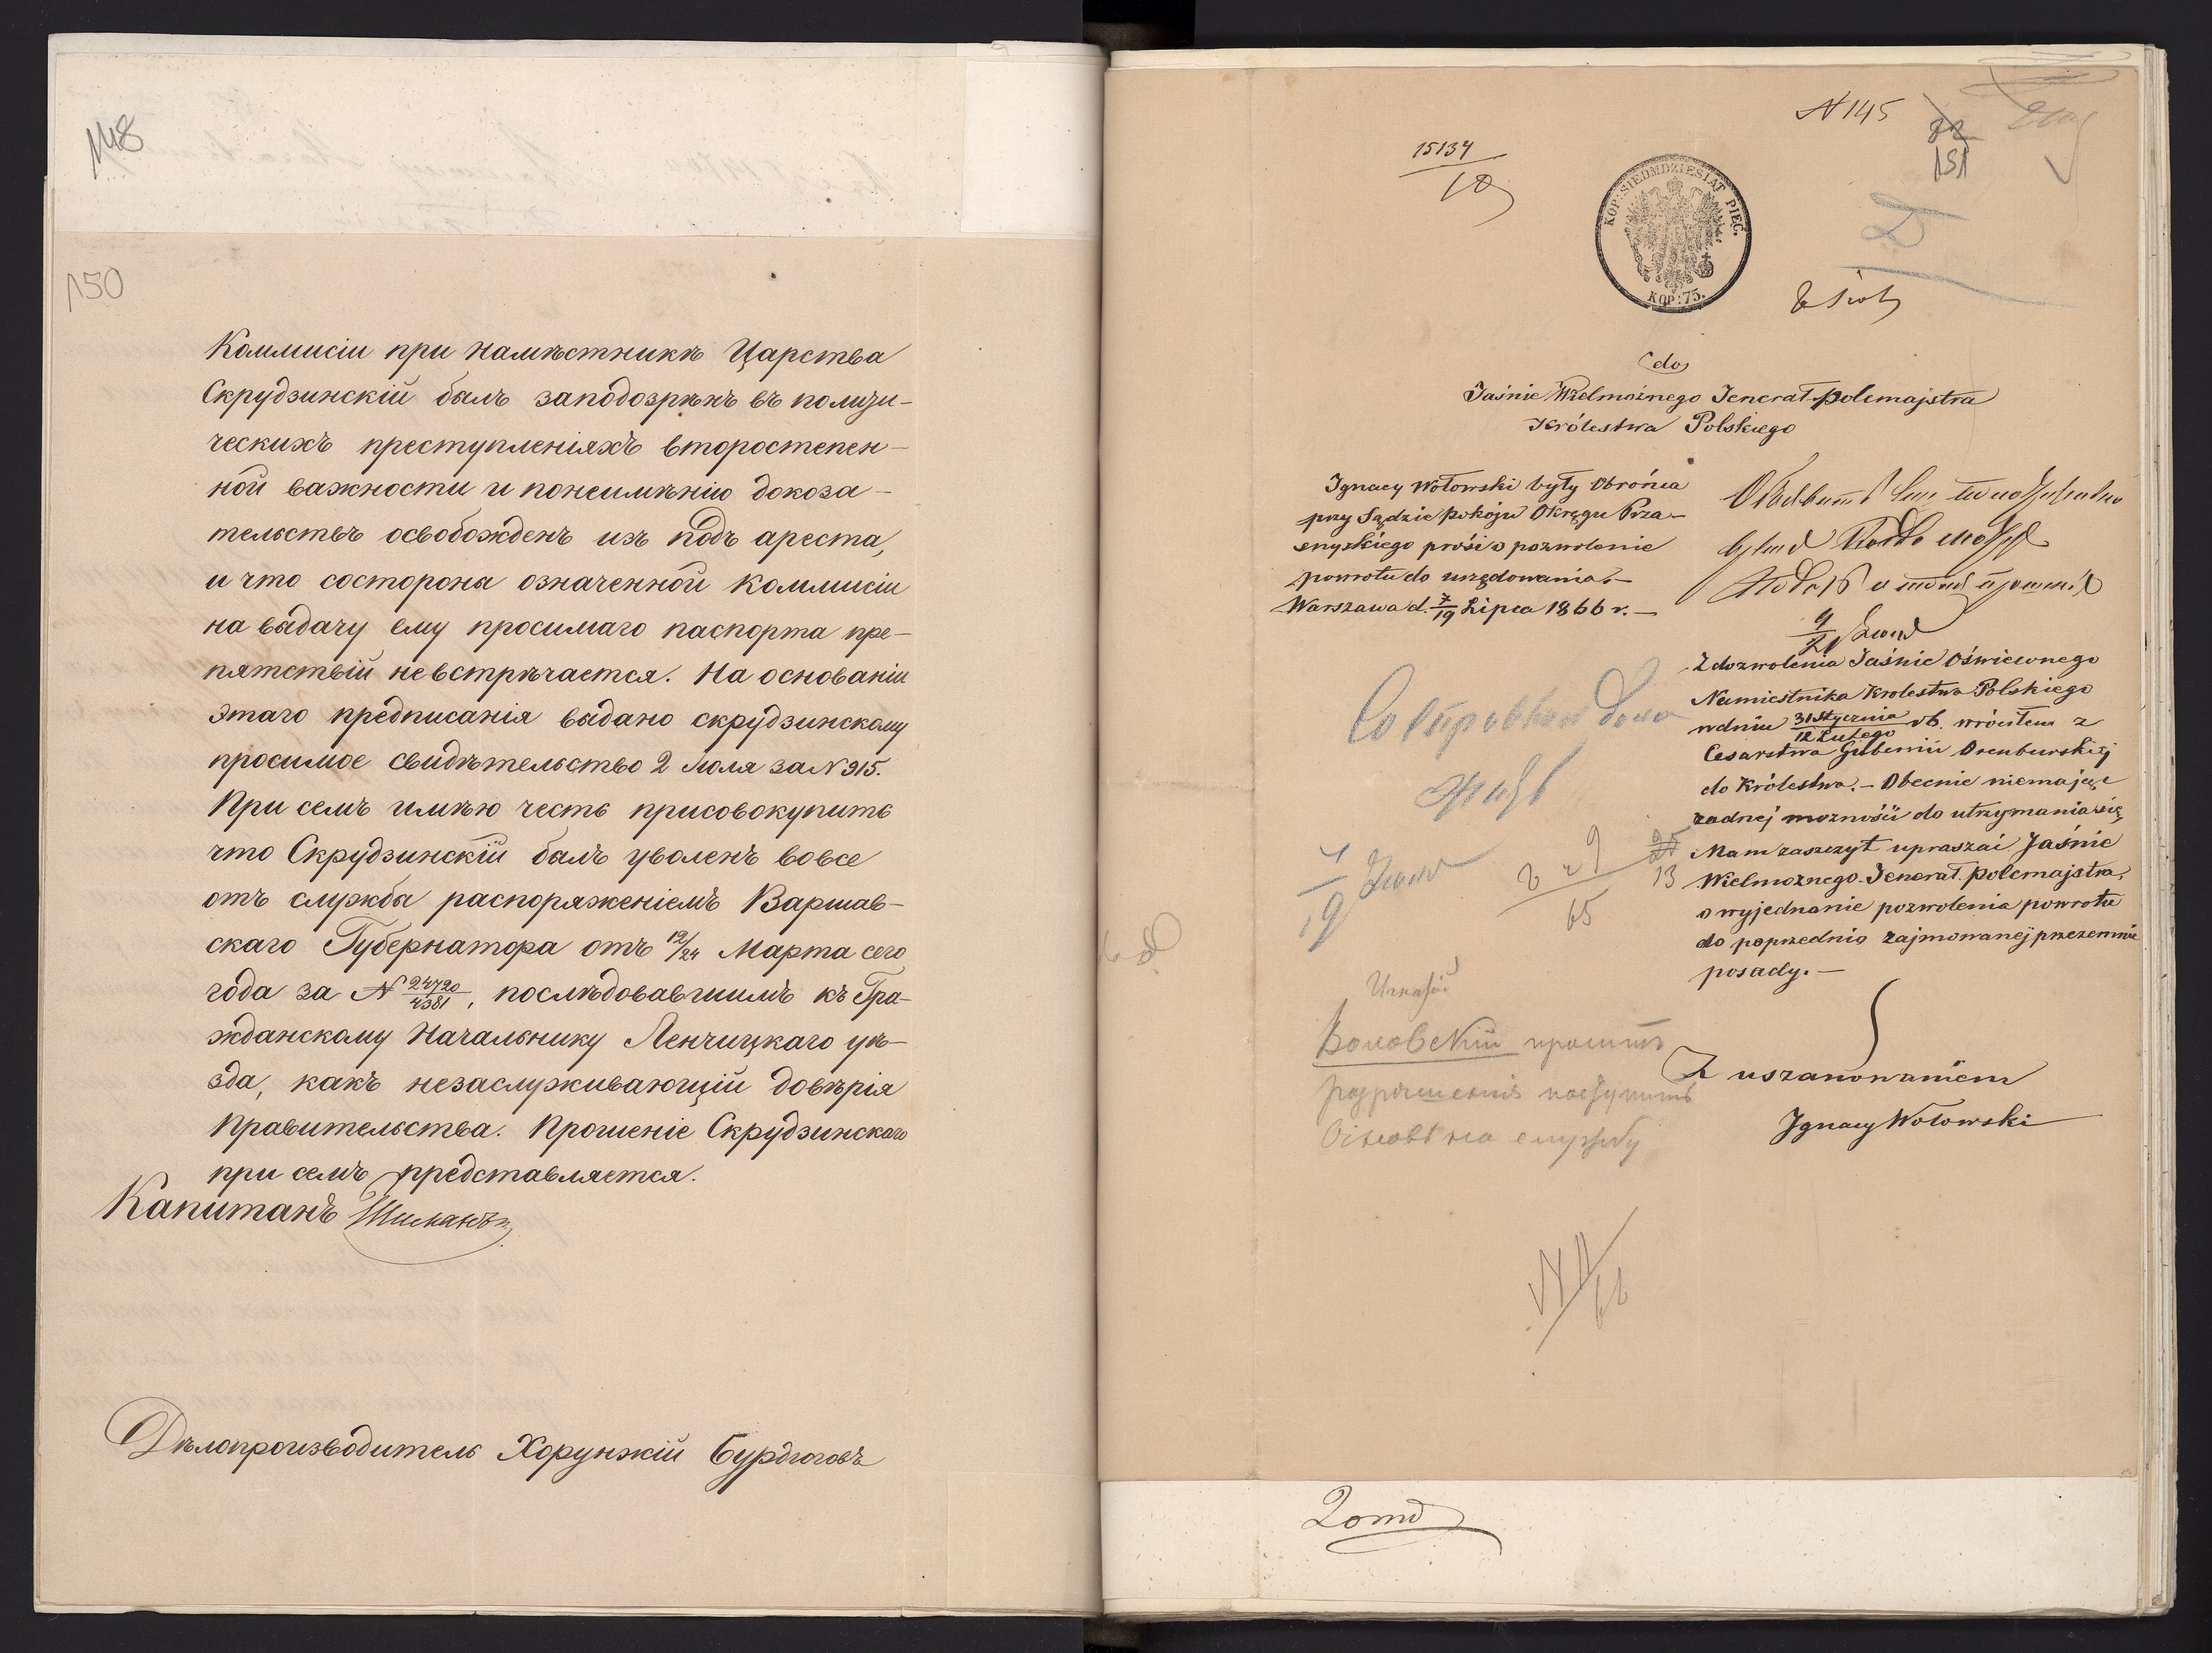 148
150
Коммисіи при Намѣстникѣ Царства
Скрудзинскій былъ заподозрѣнъ въ полити-
ческихъ преступленіяхъ второстепен-
ной важности и понеимѣнію доказа-
тельствъ освобожденъ изъ подъ ареста,
и что состороны означенной Коммисіи
на выдачу ему просимаго паспорта пре-
пятствій невстрѣчается. На основаніи
этаго предписанія выдано Скрудзинскому
просимое свидѣтельство 2 Іюля за N 915.
При семъ имѣю честь присовокупить
что Скрудзинскій былъ уволенъ вовсе
отъ службы распоряженіемъ Варшав-
скаго Губернатора отъ 12/24 Марта сего
года за N 24720/4381, послѣдовавшимъ къ Гра-
жданскому Начальнику Ленчицкаго уѣ-
зда, какъ незаслуживающій довѣрія
Правительства. Прошеніе Скрудзинскаго
при семъ представляется.
Капитанъ
Дѣлопроизводитель Хорунжій Бурдюговъ
N 145
151
15134
KOP: SIEDMDZIESIĄT PIĘĆ.
KOP: 75.
do
Jaśnie Wielmożnego Jenerał-Polcmajstra
Królestwa Polskiego
Ignacy Wołowski były Obrońca
przy Sądzie Pokoju Okręgu Prza-
snyskiego prosi o pozwolenie
powrotu do urzędowania.-
Warszawa d. 7/19 Lipca 1866 r. -
Z dozwolenia Jaśnie Oświeconego
Namiestnika Krolestwa Polskiego
w dniu 31 Stycznia/12 Lutego rb. wróciłem z
Cesarstwa Gubernii Orenburskiej
do Królestwa. - Obecnie niemając
żadnej możności do utrzymania się
Mam zaszczyt upraszać Jaśnie
Wielmożnego Jenerał Polcmajstra,
o wyjednanie pozwolenia powrotu
do poprzednio zajmowanej przezemnie
posady. -
Z uszanowaniem
Ignacy Wołowski
13
65
Игнатій
Воловскій проситъ
разрѣшенія поступить
на службу